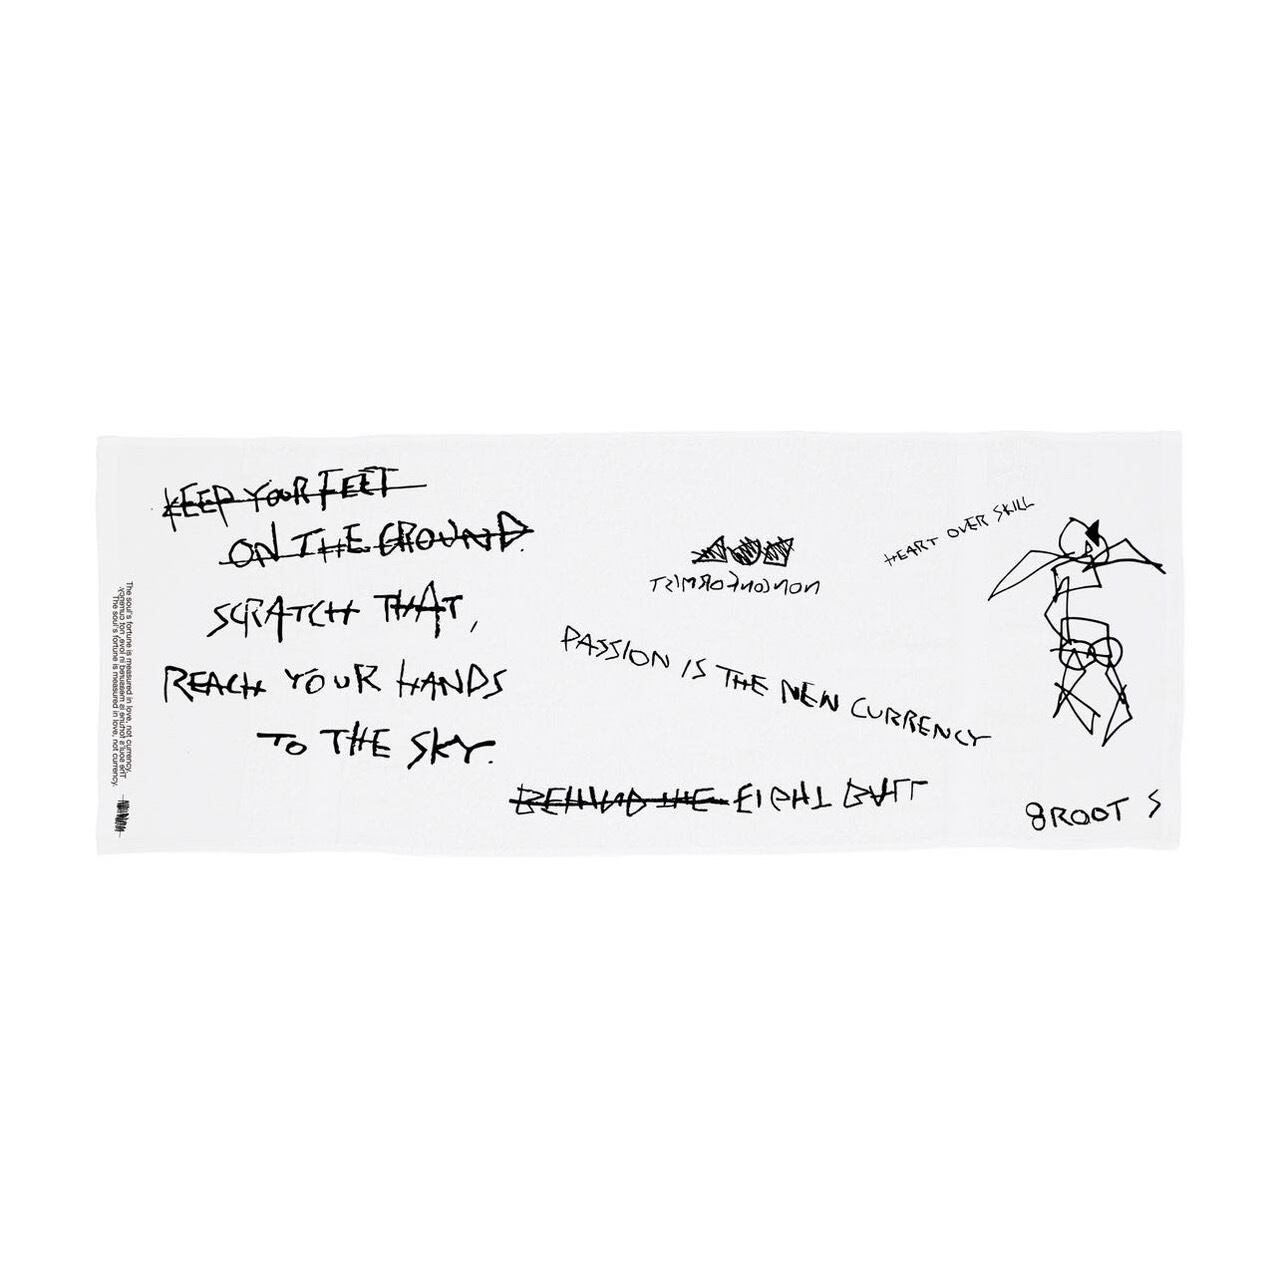 KEEP YOUR FEET
ON THE GROUND.
SCRATCH THAT,
REACH YOUR HANDS
TO THE SKY.
nonconFoRMIST
HEART OVER SKILL
PASSION IS THE NEW CURRENCY
BEHIND THE EIGHT BALL
8ROOT S
The soul's fortune is measured in love, not currency.
The soul's fortune is measured in love, not currency.
The soul's fortune is measured in love, not currency.